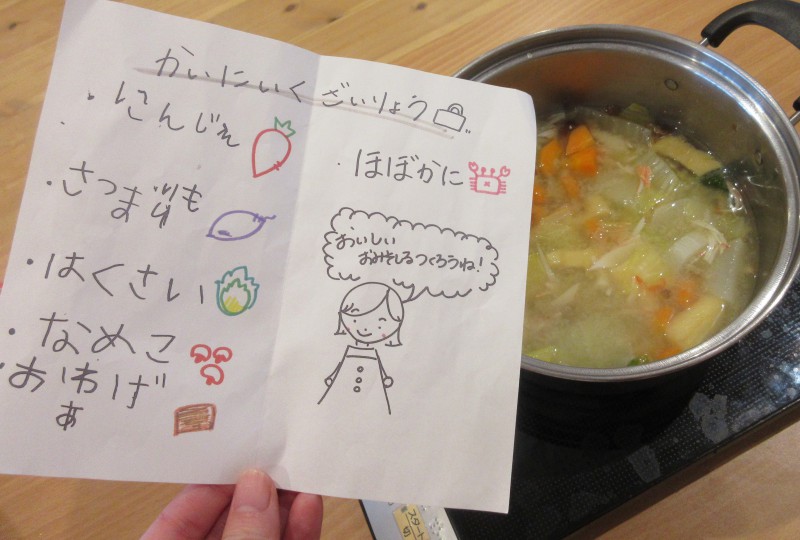 かいにいく ざいりょう
・にんじん
・さつまいも
・はくさい
・なめこ
・おあげ
・ほぼかに
おいしい
おみそしるつくろうね!
スタート